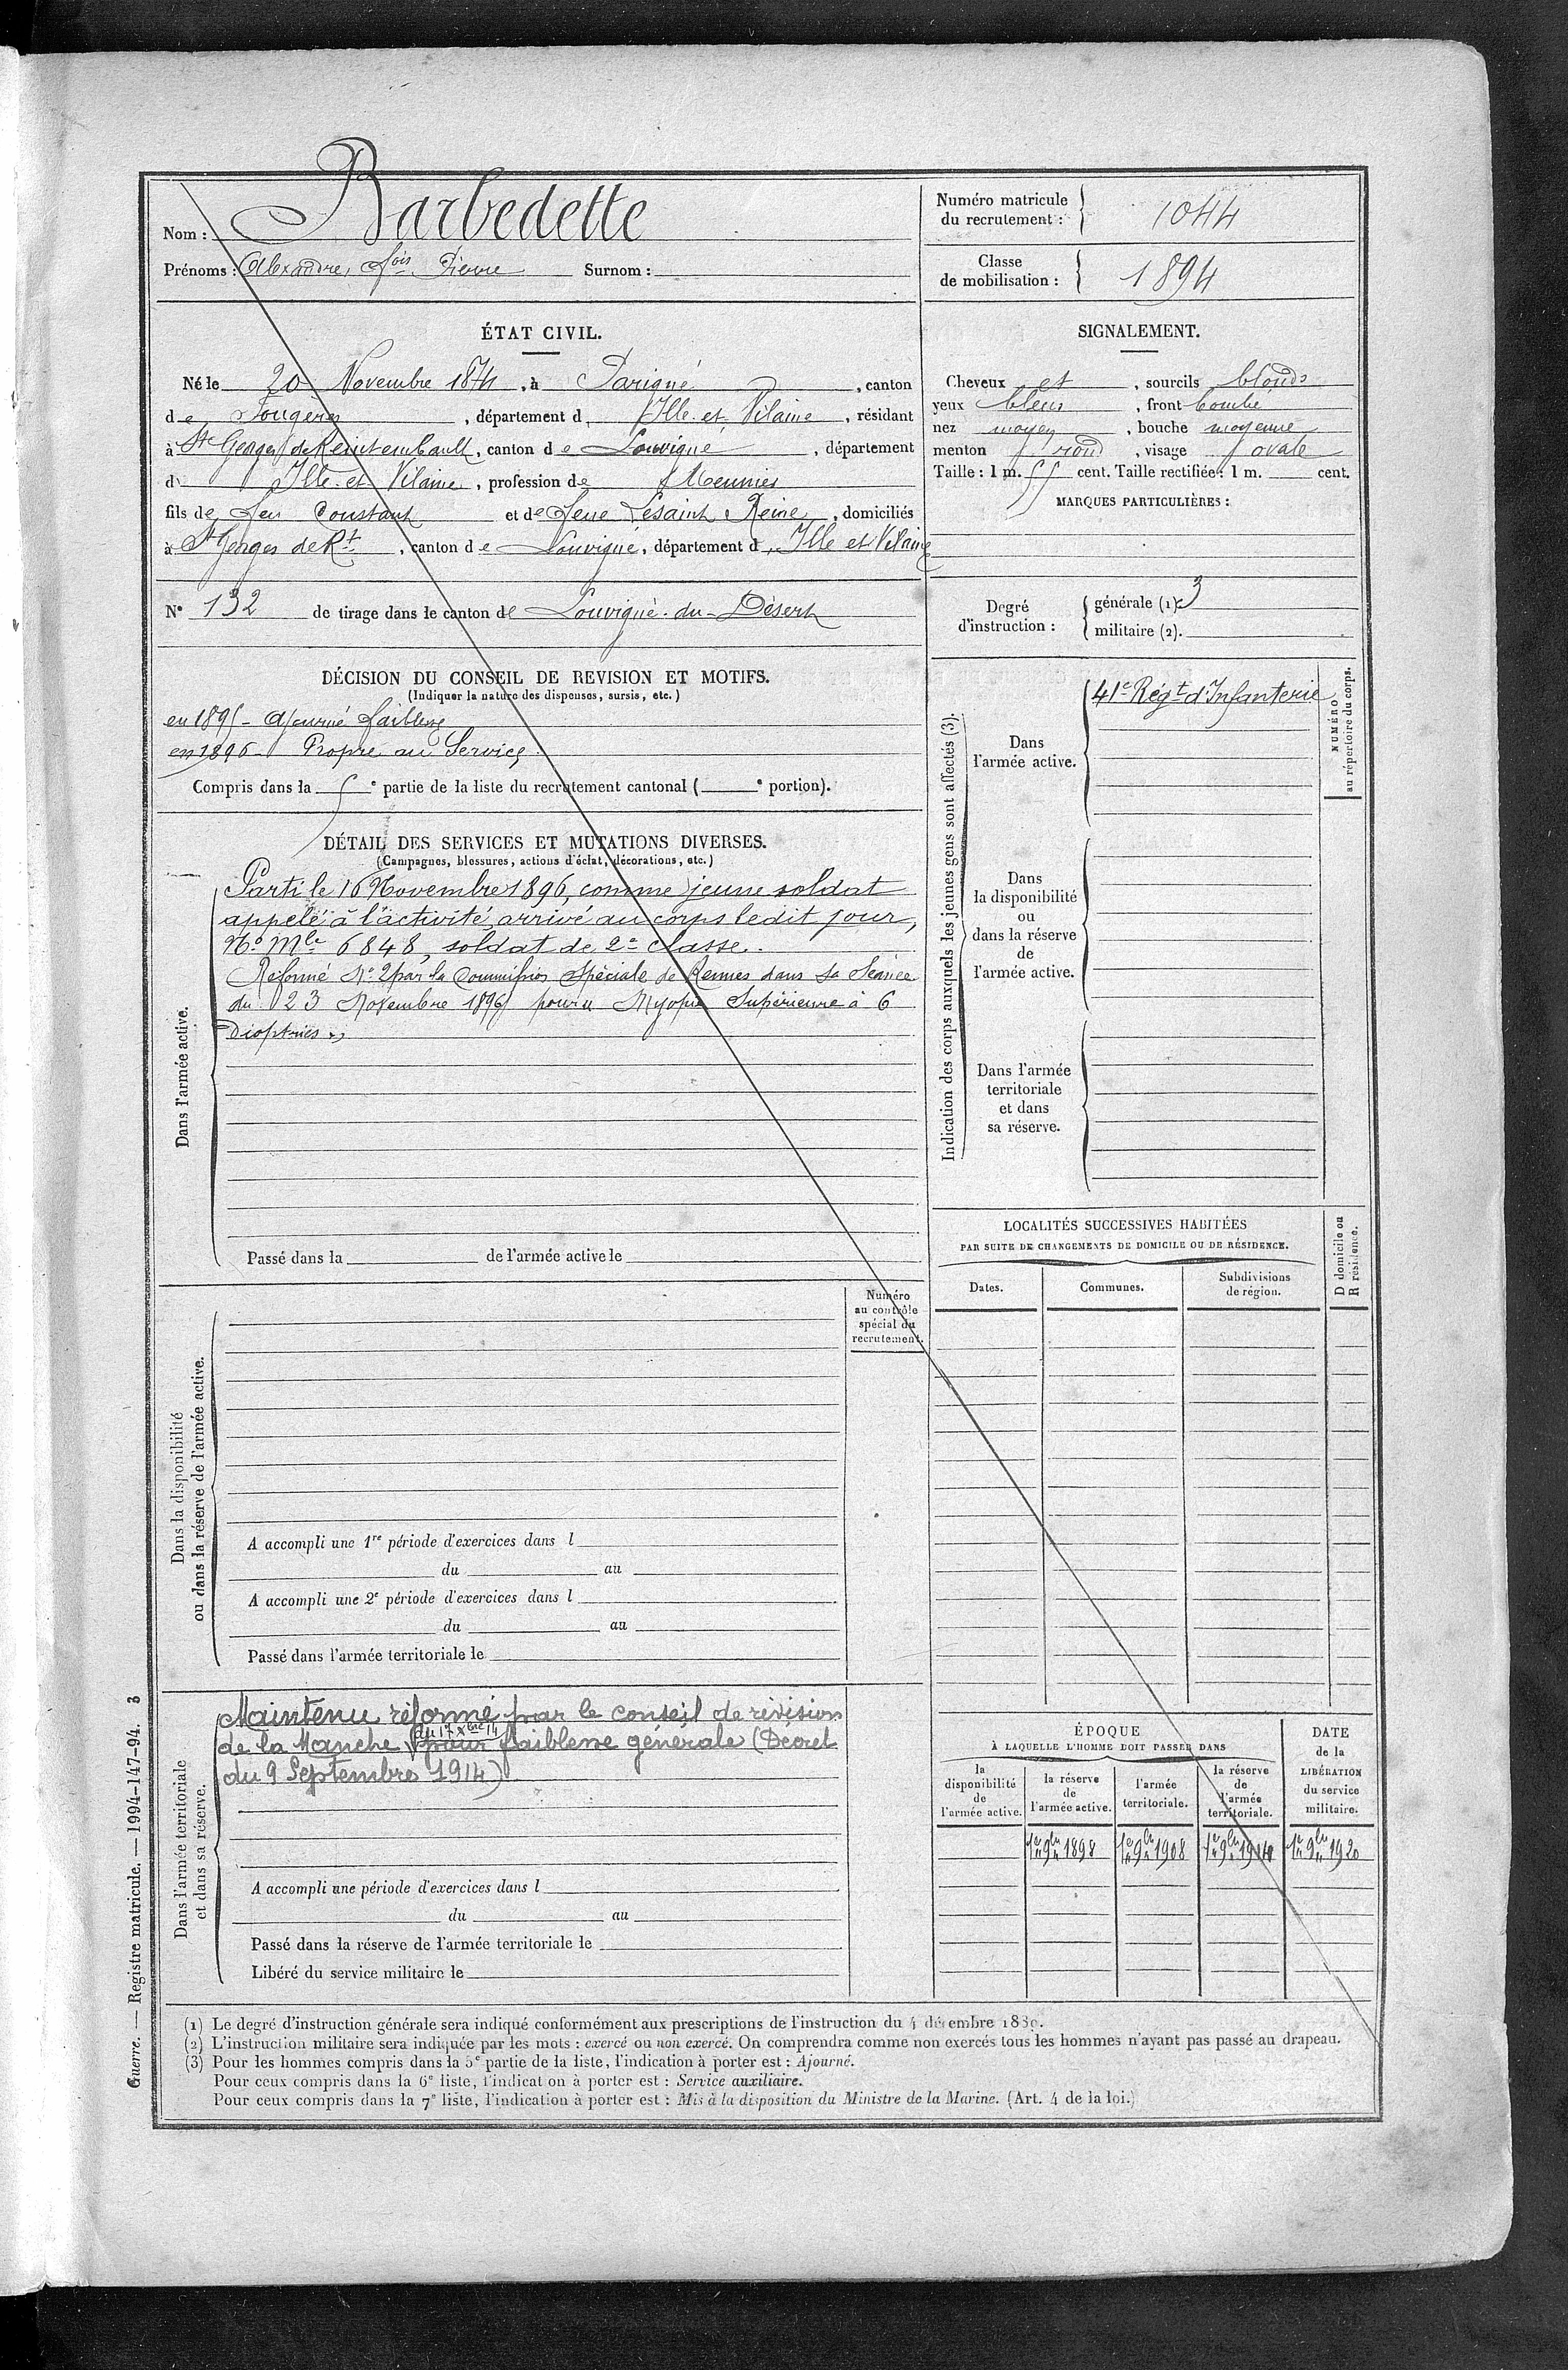 Nom : Barbedette
Prénoms : Alexandre, fois Pierre Surnom :
Numéro matricule du recrutement : 1044
Classe de mobilisation : 1894
ÉTAT CIVIL.
Né le 20 Novembre 1874, à Parigné, canton
de Fougères, département d Ille-et-Vilaine, résidant
à St Georges de Reintembault, canton de Louvigné, département
d Ille-et-Vilaine, profession de Meunier
fils de feu Constant et de feue Lesaint Reine, domiciliés
à St Georges de Rt, canton de Louvigné, département d Ille et Vilaine
N° 132 de tirage dans le canton de Louvigné-du-Désert
SIGNALEMENT.
Cheveux et, sourcils blonds
yeux bleus, front bombé
nez moyen, bouche moyenne
menton rond, visage ovale
Taille : 1 m. 55 cent. Taille rectifiée : 1 m. cent.
MARQUES PARTICULIÈRES :
Degré d'instruction :
générale (1). 3
militaire (2).
DÉCISION DU CONSEIL DE REVISION ET MOTIFS.
(Indiquer la nature des dispenses, sursis, etc.)
en 1895 - Ajourné faiblesse
en 1896 - Propre au Service
Compris dans la 5e partie de la liste du recrutement cantonal ( e portion).
DÉTAIL DES SERVICES ET MUTATIONS DIVERSES.
(Campagnes, blessures, actions d'éclat, décorations, etc.)
Dans l'armée active.
Parti le 16 Novembre 1896, comme jeune soldat
appelé à l'activité, arrivé au corps ledit jour,
N° Mle 6848, soldat de 2e classe.
Réformé N° 2 par la Commission Spéciale de Rennes dans sa Séance
du 23 Novembre 1896 pour Myopie Supérieure à 6
Dioptries.
Passé dans la de l'armée active le
Indication des corps auxquels les jeunes gens sont affectés (3).
Dans l'armée active.
41e Régt d'Infanterie
Dans la disponibilité ou dans la réserve de l'armée active.
Dans l'armée territoriale et dans sa réserve.
NUMÉRO au répertoire du corps.
LOCALITÉS SUCCESSIVES HABITÉES
PAR SUITE DE CHANGEMENTS DE DOMICILE OU DE RÉSIDENCE.
Dates. Communes. Subdivisions de région.
D domicile ou R résidence.
Numéro au contrôle spécial du recrutement.
Dans la disponibilité
ou dans la réserve de l'armée active.
A accompli une 1re période d'exercices dans l
du au
A accompli une 2e période d'exercices dans l
du au
Passé dans l'armée territoriale le
Dans l'armée territoriale
et dans sa réserve.
Maintenu réformé par le conseil de révision
du 17 Xbre 14
de la Manche pour faiblesse générale (Décret
du 9 Septembre 1914)
A accompli une période d'exercices dans l
du au
Passé dans la réserve de l'armée territoriale le
Libéré du service militaire le
ÉPOQUE
À LAQUELLE L'HOMME DOIT PASSER DANS
la disponibilité de l'armée active.
la réserve de l'armée active.
l'armée territoriale.
la réserve de l'armée territoriale.
DATE de la LIBÉRATION du service militaire.
1er 9bre 1898 1er 9bre 1908 1er 9bre 1914 1er 9bre 1920
(1) Le degré d'instruction générale sera indiqué conformément aux prescriptions de l'instruction du 4 décembre 1889.
(2) L'instruction militaire sera indiquée par les mots : exercé ou non exercé. On comprendra comme non exercés tous les hommes n'ayant pas passé au drapeau.
(3) Pour les hommes compris dans la 5e partie de la liste, l'indication à porter est : Ajourné.
Pour ceux compris dans la 6e liste, l'indication à porter est : Service auxiliaire.
Pour ceux compris dans la 7e liste, l'indication à porter est : Mis à la disposition du Ministre de la Marine. (Art. 4 de la loi.)
Guerre. — Registre matricule. — 1994-147-94. 3